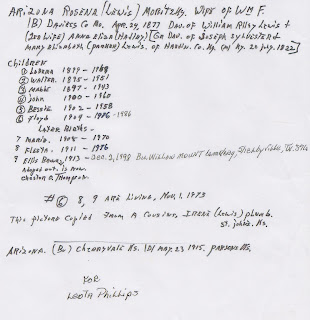 ARIZONA ROSENA (LEWIS) MORITZKY, WIFE OF WM F.
(B) DAVIESS CO MO. APR. 29, 1877 DAU. OF WILLIAM RILEY LEWIS +
(2ND WIFE) ANNA ELIZA (HADLEY) [GR DAU. OF JOSEPH SYLVESTER +
MARY ELIZABETH (PARMAN) LEWIS, OF HARDIN CO. KY. (M) KY. 22 JULY 1822]
CHILDREN
① LORENA 1894 - 1968
② WALTER 1895 - 1951
③ MABLE 1897 - 1943
④ JOHN 1900 - 1960
⑤ BESSIE 1902 - 1958
⑥ FLOYD 1904 - 1986 - 1986
LATER DEATHS -
7 MARIE 1908 - 1970
8 FLECTA 1911 - 1986
9 ELLIS DEWEY 1913 - DEC. 2, 1998 BU. WILLOW MOUNT CEMETERY, SHELBYVILLE, TN.
ADOPED OUT. IS NOW
CHESTER A. THOMPSON
# ⑥ 8, 9 ARE LIVING, NOV, 1, 1973
THIS RECORD COPIED FROM A COUSINS, IRENE (LEWIS) PLUMB.
ST. JOHNS. KS.
ARIZONA. (BU) CHERRYVALE KS. (D) MAY. 23 1915. PARSONS KS.
FOR
LEOTA PHILLIPS